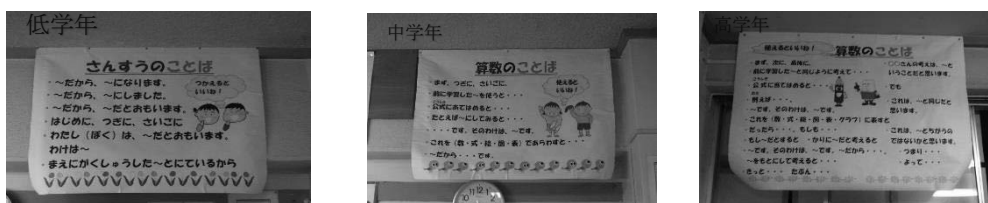 低学年
さんすうのことば
・～だから、～になります。
・～だから、～にしました。
・～だから、～だとおもいます。
・はじめに、つぎに、さいごに
・わたし（ぼく）は、～だとおもいます。
わけは～
・まえにがくしゅうした～とにているから
つかえると
いいね！
中学年
算数のことば
・まず、つぎに、さいごに、
・前に学習した～を使うと・・・
・公式にあてはめると・・・
・たとえば～にしてみると・・・
・・・・です。そのわけは、～です。
・これを（数・式・絵・図・表）であらわすと・・・
・～だから・・・です。
使えると
いいね！
12
高学年
使えるといいね！
算数のことば
・まず、次に、最後に、
・前に学習した～と同じように考えて・・・
・公式に当てはめると・・・
・例えば・・・、
・～です。そのわけは、～です。
・これを（数・式・絵・図・表・グラフ）に表すと
・だったら・・・、もしも・・・
・もし～だとすると ・かりに～だと考えると
・～です。そのわけは、～です。～だから・・・、
・～をもとにして考えると・・・
・きっと・・・ たぶん・・・
・〇〇さんの考えは、～と
いうことだと思います。
・でも
・これは、～と同じだと
思います。
・これは、～とちがうの
ではないかと思います。
・つまり・・・
・よって・・・